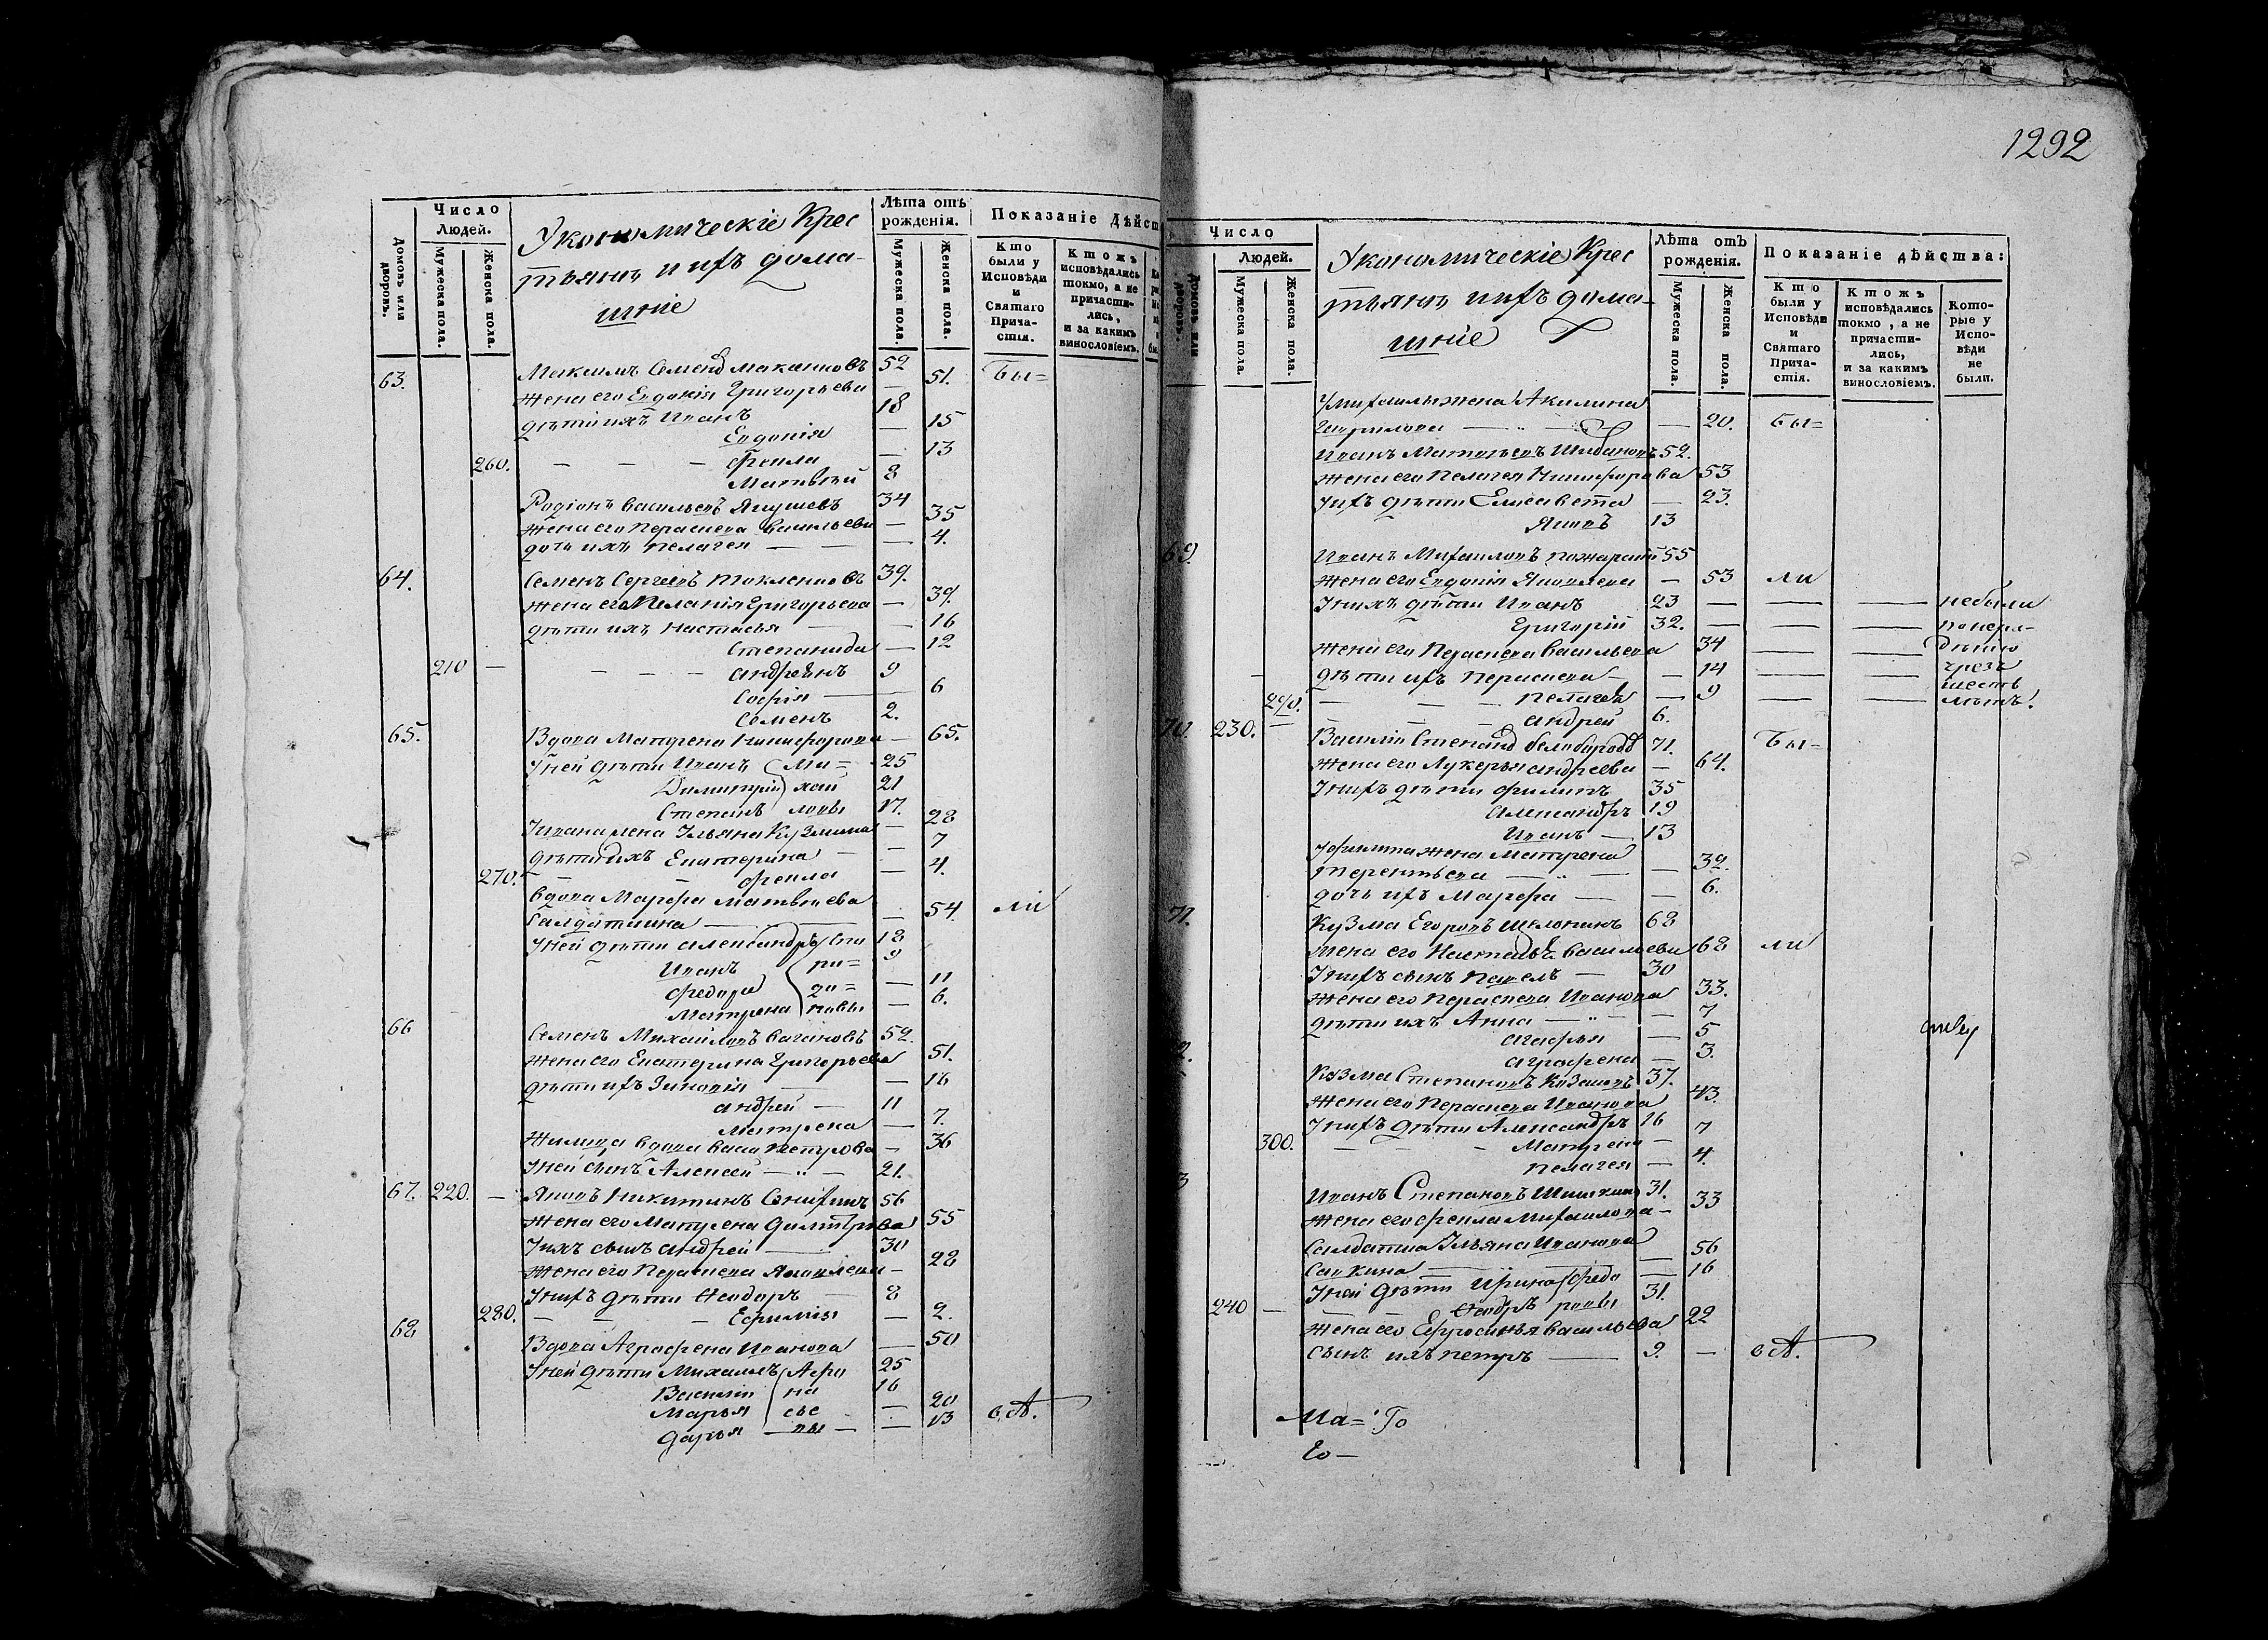 1292
Число
Людей.
Домовъ или дворовъ.
Мужеска пола.
Женска пола.
Укономическіе Крес
тьянъ и ихъ дома-
шніе
Лѣта отъ
рожденія.
Мужеска пола.
Женска пола.
Показаніе Дѣйст
Кто
были у
Исповѣди
и
Святаго
Прича-
стія.
Ктожъ
исповѣдались
токмо, а не
причасти-
лись,
и за какимъ
винословіемъ.
63. Максимъ Семенов 52
жена его Евдокія Григорьева — 51. Бы=
дѣти ихъ Иванъ 18
Евдокія — 15
260. — — — Фекла — 13
Матвѣй 8
Родіонъ Васильевъ Якушевъ 34
жена его Параскева Васильева — 35
дочь ихъ Пелагея — — — 4.
64. Семенъ Сергѣевъ 39.
жена его Меланія Григорьева — 39.
дѣти ихъ Настасья — — 16
Степанида — 12
210 — — — — Андреянъ 9
Софія — 6
Семенъ 2.
65. Вдова Матрена Никифорова — 65.
У ней дѣти Иванъ Ми= 25
Димитрій хай 21
Степанъ ловы 17.
У Ивана жена Ульяна Кузмина — 28
дѣти ихъ Екатерина — — 7
270. — — Фекла — 4.
Вдова Марфа Матвѣева
Салдаткина — — 54. ли
У ней дѣти Александръ Спи 18
Иванъ ри= 9
Федора до= — 11
Матрена новы — 6.
66 Семенъ Михайловъ Вагановъ 52.
жена его Екатерина Григорьева 51.
дѣти ихъ Зиновія — — 16
Андрей — 11
Матрена — 7.
Жилица вдова Васи Петрова — 36
У ней сынъ Алексей — „ — 21.
67. 220. — Яковъ Никитинъ 56
жена его Матрена Димитріева 55
У ихъ сынъ Андрей — 30
жена его Параскева Яковлева — 28
У нихъ дѣти Ѳеодоръ — 8
280. — — — Ефимія — 2.
68 Вдова Аграфена Иванова — 50
У ней дѣти Михаилъ Афо 25
Василій на 16
Марья сье — 20
Дарья — вы — — 13 в.А.
Число
Людей.
Домовъ или дворовъ.
Мужеска пола.
Женска пола.
Укономическіе Крес
тьянъ и ихъ дома-
шніе
Лѣта отъ
рожденія.
Мужеска пола.
Женска пола.
Показаніе дѣйства:
Кто
были у
Исповѣди
и
Святаго
Прича-
стія.
Ктожъ
исповѣдались
токмо, а не
причасти-
лись,
и за какимъ
винословіемъ.
Кото-
рые у
Испо-
вѣди
не
были.
У Михаилы жена Акилина
Гаврилова — „ — — 20. Бы=
Иванъ Матвѣевъ 52.
жена его Пелагея Никифорова 53
У ихъ дѣти Елисавета — 23.
Яковъ 13
69. Иванъ Михаиловъ 55
жена его Евдокія Яковлева — 53 ли
У нихъ дѣти Иванъ 23 — — — небыли
Григорій 32. — — — понера-
жена его Параскева Васильева 34 — — дѣнію
дѣти ихъ Параскева — — 14 — — чрезъ
290. — — — Пелагея — 9 — — шесть
70. 230. — — — — Андрей 6. лѣтъ.
Василій Степанов Белобородов 71. Бы=
жена его Лукерья Андреева — 64.
У нихъ дѣти Филипъ 35
Александръ 19
Иванъ — 13
У Филипа жена Матрена
Терентьева — „ — — 32.
дочь ихъ Марфа — — 6.
71. Кузма Егоровъ Шелопинъ 68
жена его Настасья Васильева 68 ли
У нихъ сынъ Павелъ — 30
жена его Параскева Иванова 33.
дѣти ихъ Анна — „ — — 7
Агафья — 5
Аграфена — 3.
2. Козма Степановъ 37.
жена его Параскева Иванова 43.
У нихъ дѣти Александръ 16
300. — — — Матрена — 7
Пелагея — 4.
3 Иванъ Степановъ Шишкинъ 31.
жена его Фекла Михаилова — 33
Салдатка Ульяна Иванова
Савкина — „ — 56
У ней дѣти Ирина Федо — 16
240 — Ѳеодръ ровы 31.
жена его Ефросинья Васильева 22
сынъ ихъ Петръ — 9. — в А.
Ма= Го
Ео —